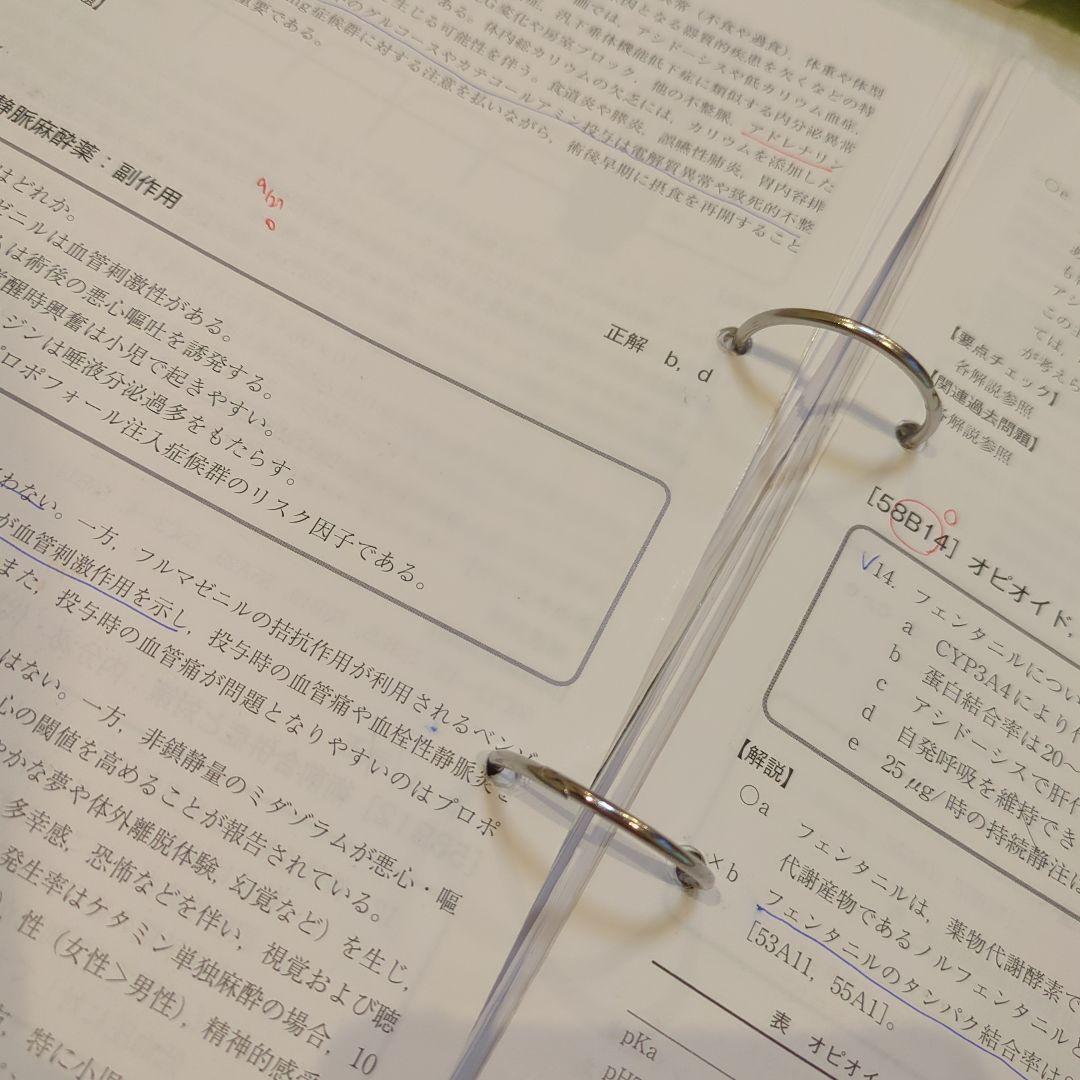 （不食や過食），体重や体型
となる器質的疾患を欠くなどの特
では，アシドーシスや低カリウム血症，
汎下垂体機能低下症に類似する内分泌異常
変化や房室ブロック，他の不整脈，アドレナリン
ある。体内総カリウムの欠乏には，カリウムを添加した
生じる可能性を伴う。食道炎や膵炎，誤嚥性肺炎，胃内容排
グルコースやカテコールアミン投与は電解質異常や致死的不整
症候群に対する注意を払いながら，術後早期に摂食を再開すること
重要である。
正解 b，d
静脈麻酔薬：副作用
9/27
はどれか。
ゼニルは血管刺激性がある。
ムは術後の悪心嘔吐を誘発する。
覚醒時興奮は小児で起きやすい。
ジンは唾液分泌過多をもたらす。
プロポフォール注入症候群のリスク因子である。
わない。一方，フルマゼニルの拮抗作用が利用されるベンゾ
が血管刺激作用を示し，投与時の血管痛や血栓性静脈炎
また，投与時の血管痛が問題となりやすいのはプロポ
はない。一方，非鎮静量のミダゾラムが悪心・嘔
心の閾値を高めることが報告されている。
やかな夢や体外離脱体験，幻覚など）を生じ，
多幸感，恐怖などを伴い，視覚および聴
発生率はケタミン単独麻酔の場合，10
性（女性＞男性），精神的感受
特に小児
○e
も
アシ
この
ては，
が考えら
【要点チェック】
各解説参照
【関連過去問題】
各解説参照
[58B14] オピオイド，
14. フェンタニルについ
a CYP3A4により代
b 蛋白結合率は20～
c アシドーシスで肝代
d 自発呼吸を維持でき
e 25μg/時の持続静注は
【解説】
○a フェンタニルは，薬物代謝酵素で
代謝産物であるノルフェンタニルと
×b フェンタニルのタンパク結合率は
[53A11，55A1]。
表 オピオイ
pKa